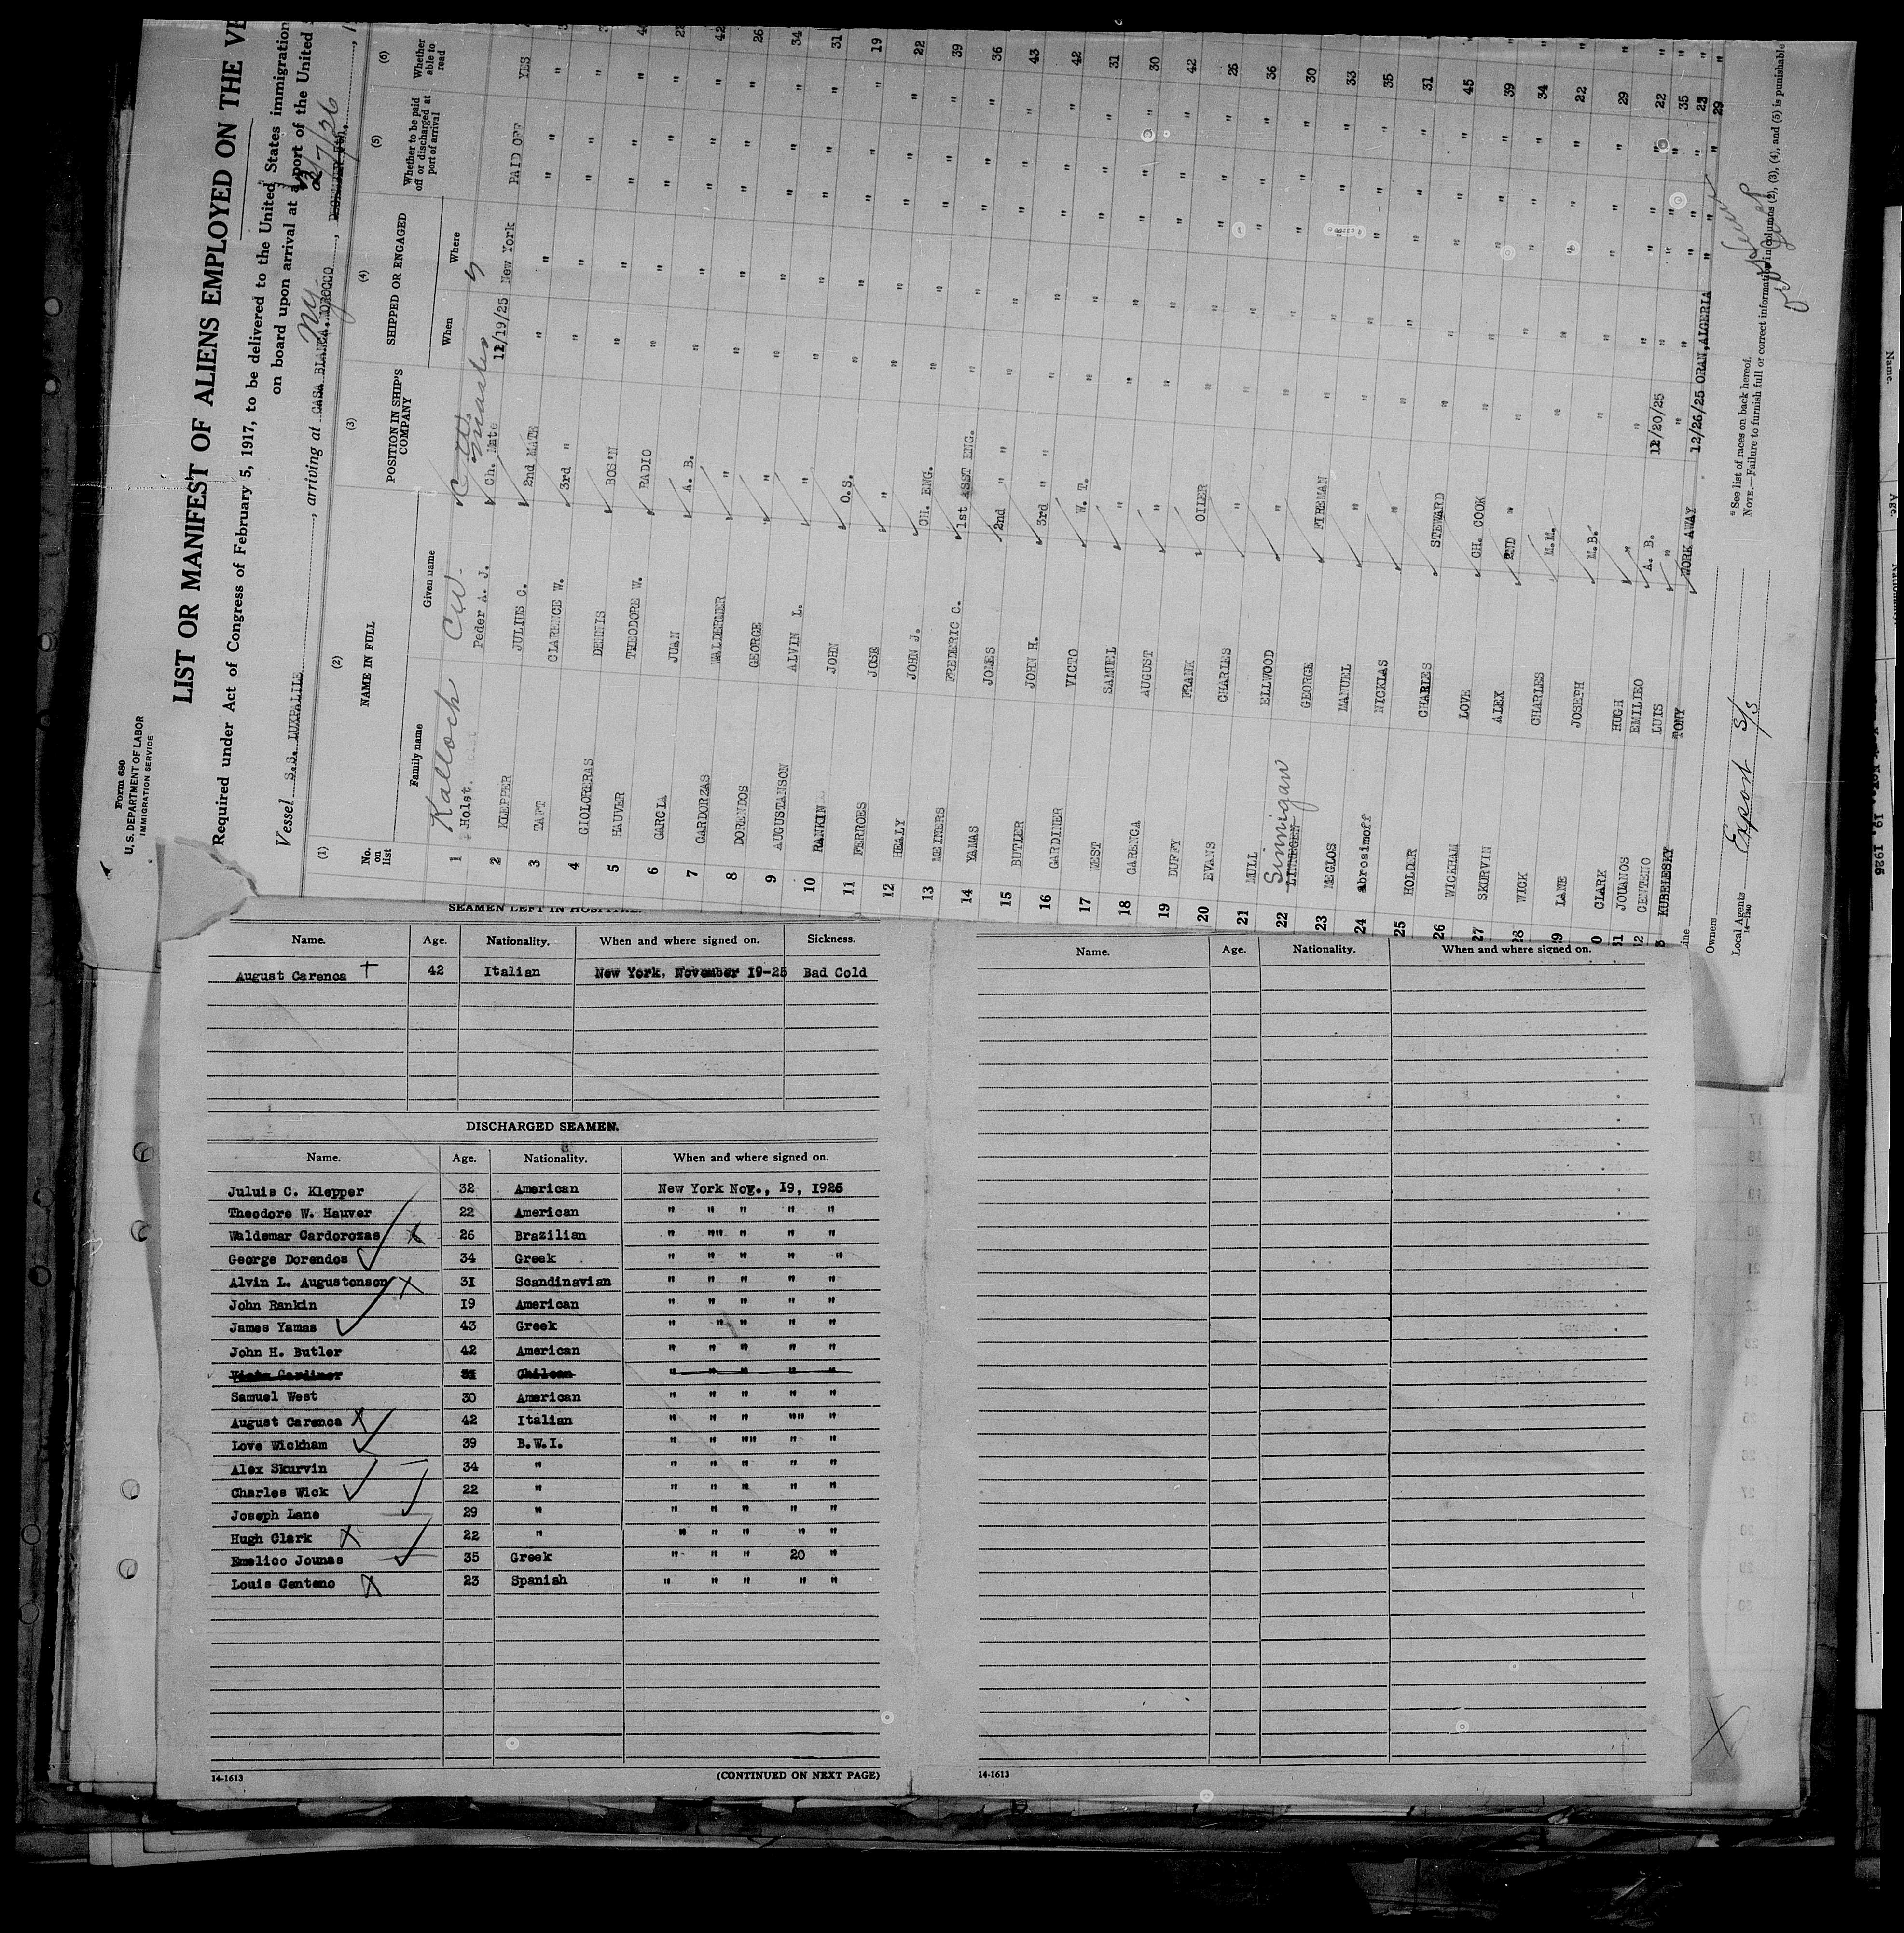 Form 680
U. S. DEPARTMENT OF LABOR
IMMIGRATION SERVICE
LIST OR MANIFEST OF ALIENS EMPLOYED ON THE
Required under Act of Congress of February 5, 1917, to be delivered to the United States immigration
on board upon arrival at a port of the United
Vessel S.S. LUXPALILE, arriving at CASA BLANCA, MOROCCO N.Y.
(1) (2) (3) (4) (5) (6)
No. on list
NAME IN FULL
Family name Given name
POSITION IN SHIP'S COMPANY
SHIPPED OR ENGAGED
When Where
Whether to be paid off or discharged at port of arrival
Whether able to read
Kalloch CW. Master
1 Holst. Peder A. J. Ch. Mate 12/19/25 New York PAID OFF YES
2 KLEPPER JULIUS C. 2nd MATE " " " "
3 TAFT CLARENCE W. 3rd " " " " "
4 GIOLORERAS DENNIS BOS'N " " " "
5 HAUVER THEODORE W. RADIO " " " " 22
6 GARCIA JUAN A. B. " " " " 42
7 CARDORZAS WALDERMER " " " " " 26
8 DORENDOS GEORGE " " " " " 34
9 AUGUSTANSON ALVIN L. " " " " " 31
10 RANKIN JOHN O.S. " " " " 19
11 FERROES JOSE " " " " " 22
12 HEALY JOHN J. CH. ENG. " " " " 39
13 MEINERS FREDERIC C. 1st ASST ENG. " " " " 36
14 YAMAS JOMES 2nd " " " " " 43
15 BUTLER JOHN H. 3rd " " " " " 42
16 GARDINER VICTO W. T. " " " " 31
17 WEST SAMUEL " " " " " 30
18 CARENGA AUGUST " " " " " 42
19 DUFFY FRANK OILER " " " " 26
20 EVANS CHARLES " " " " " 36
21 MULL ELLWOOD " " " " " 30
22 Sinnigaw GEORGE FIREMAN " " " " 33
23 MEGLOS MANUEL " " " " " 35
24 Abrosimoff NICKLAS " " " " " 31
25 HOLDER CHARLES STEWARD " " " " 45
26 WICKHAM LOVE CH. COOK " " " " 39
27 SKURVIN ALEX 2ND " " " " " 34
28 WICK CHARLES M.M. " " " " 22
29 LANE JOSEPH M.B. " " " " 29
0 CLARK HUGH " " " " " 22
31 JOUANOS EMILIEO A. B. 12/20/25 " " " 35
32 CENTENO LUIS " " " " " 23
3 KUBELESKY TONY WORK AWAY 12/26/25 ORAN, ALGERIA " " 29
Owners
Local Agents Export S/S
14—1940
*See list of races on back hereof.
NOTE.—Failure to furnish full or correct information in columns (2), (3), (4), and (5) is punishable
SEAMEN LEFT IN HOSPITAL.
Name. Age. Nationality. When and where signed on. Sickness.
August Carenca 42 Italian New York, November 19-25 Bad Cold
DISCHARGED SEAMEN.
Name. Age. Nationality. When and where signed on.
Juluis C. Klepper 32 American New York Nov., 19, 1925
Theodore W. Hauver 22 American " " " " "
Waldemar Cardorozas 26 Brazilian " "" " " "
George Dorendos 34 Greek " " " " "
Alvin L. Augustonson 31 Scandinavian " " " " "
John Rankin 19 American " " " " "
James Yamas 43 Greek " " " " "
John H. Butler 42 American " " " " "
Victo Gardiner 31 Chilean " " " " "
Samuel West 30 American " " " " "
August Carenca 42 Italian " " " "" "
Love Wickham 39 B.W.I. " " "" " "
Alex Skurvin 34 " " " " " "
Charles Wick 22 " " " " " "
Joseph Lane 29 " " " " " "
Hugh Clark 22 " " " " " "
Emelico Jounas 35 Greek " " " 20 "
Louis Centeno 23 Spanish " " " " "
14-1613
(CONTINUED ON NEXT PAGE)
Name. Age. Nationality. When and where signed on.
14-1613